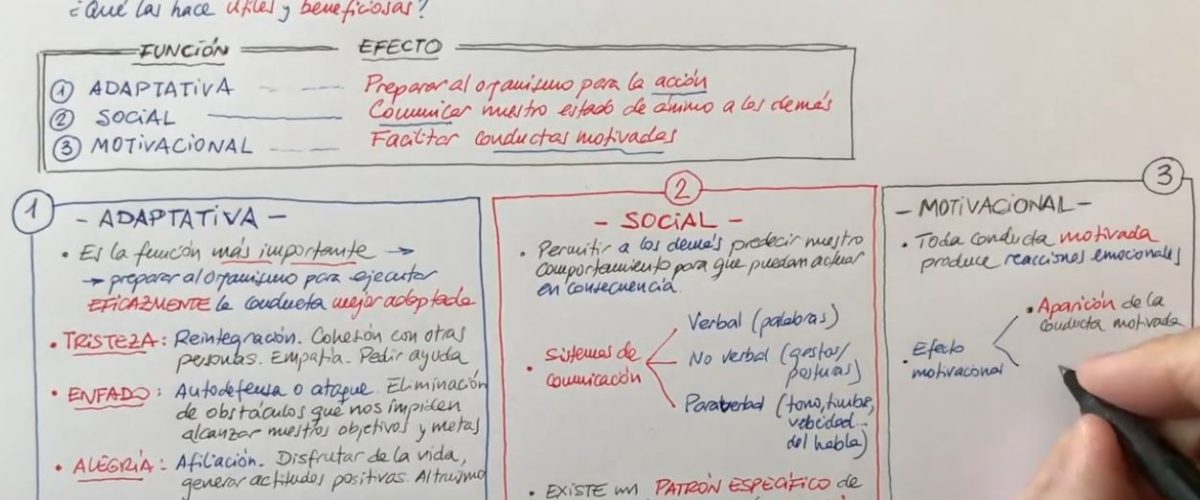 ¿Qué las hace útiles y beneficiosas?
FUNCIÓN EFECTO
① ADAPTATIVA Preparar al organismo para la acción
② SOCIAL Comunicar nuestro estado de ánimo a los demás
③ MOTIVACIONAL Facilitar conductas motivadas
1
- ADAPTATIVA -
• Es la función más importante →
→ preparar al organismo para ejecutar
EFICAZMENTE la conducta mejor adaptada
• TRISTEZA: Reintegración. Cohesión con otras
personas. Empatía. Pedir ayuda
• ENFADO: Autodefensa o ataque. Eliminación
de obstáculos que nos impiden
alcanzar nuestros objetivos y metas
• ALEGRÍA: Afiliación. Disfrutar de la vida,
generar actitudes positivas. Altruismo
2
- SOCIAL -
• Permitir a los demás predecir nuestro
comportamiento para que puedan actuar
en consecuencia.
• Sistemas de
comunicación
Verbal (palabras)
No verbal (gestos/
posturas)
Paraverbal (tono, timbre,
velocidad
del habla)
• EXISTE un PATRÓN ESPECÍFICO de
3
- MOTIVACIONAL -
• Toda conducta motivada
produce reacciones emocionales
• Efecto
motivacional
• Aparición de la
conducta motivada